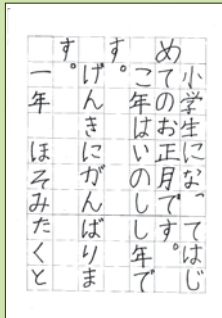 小学生になってはじ
めてのお正月です。
こ年はいのしし年で
す。
げんきにがんばりま
す。
一年　ほそみたくと